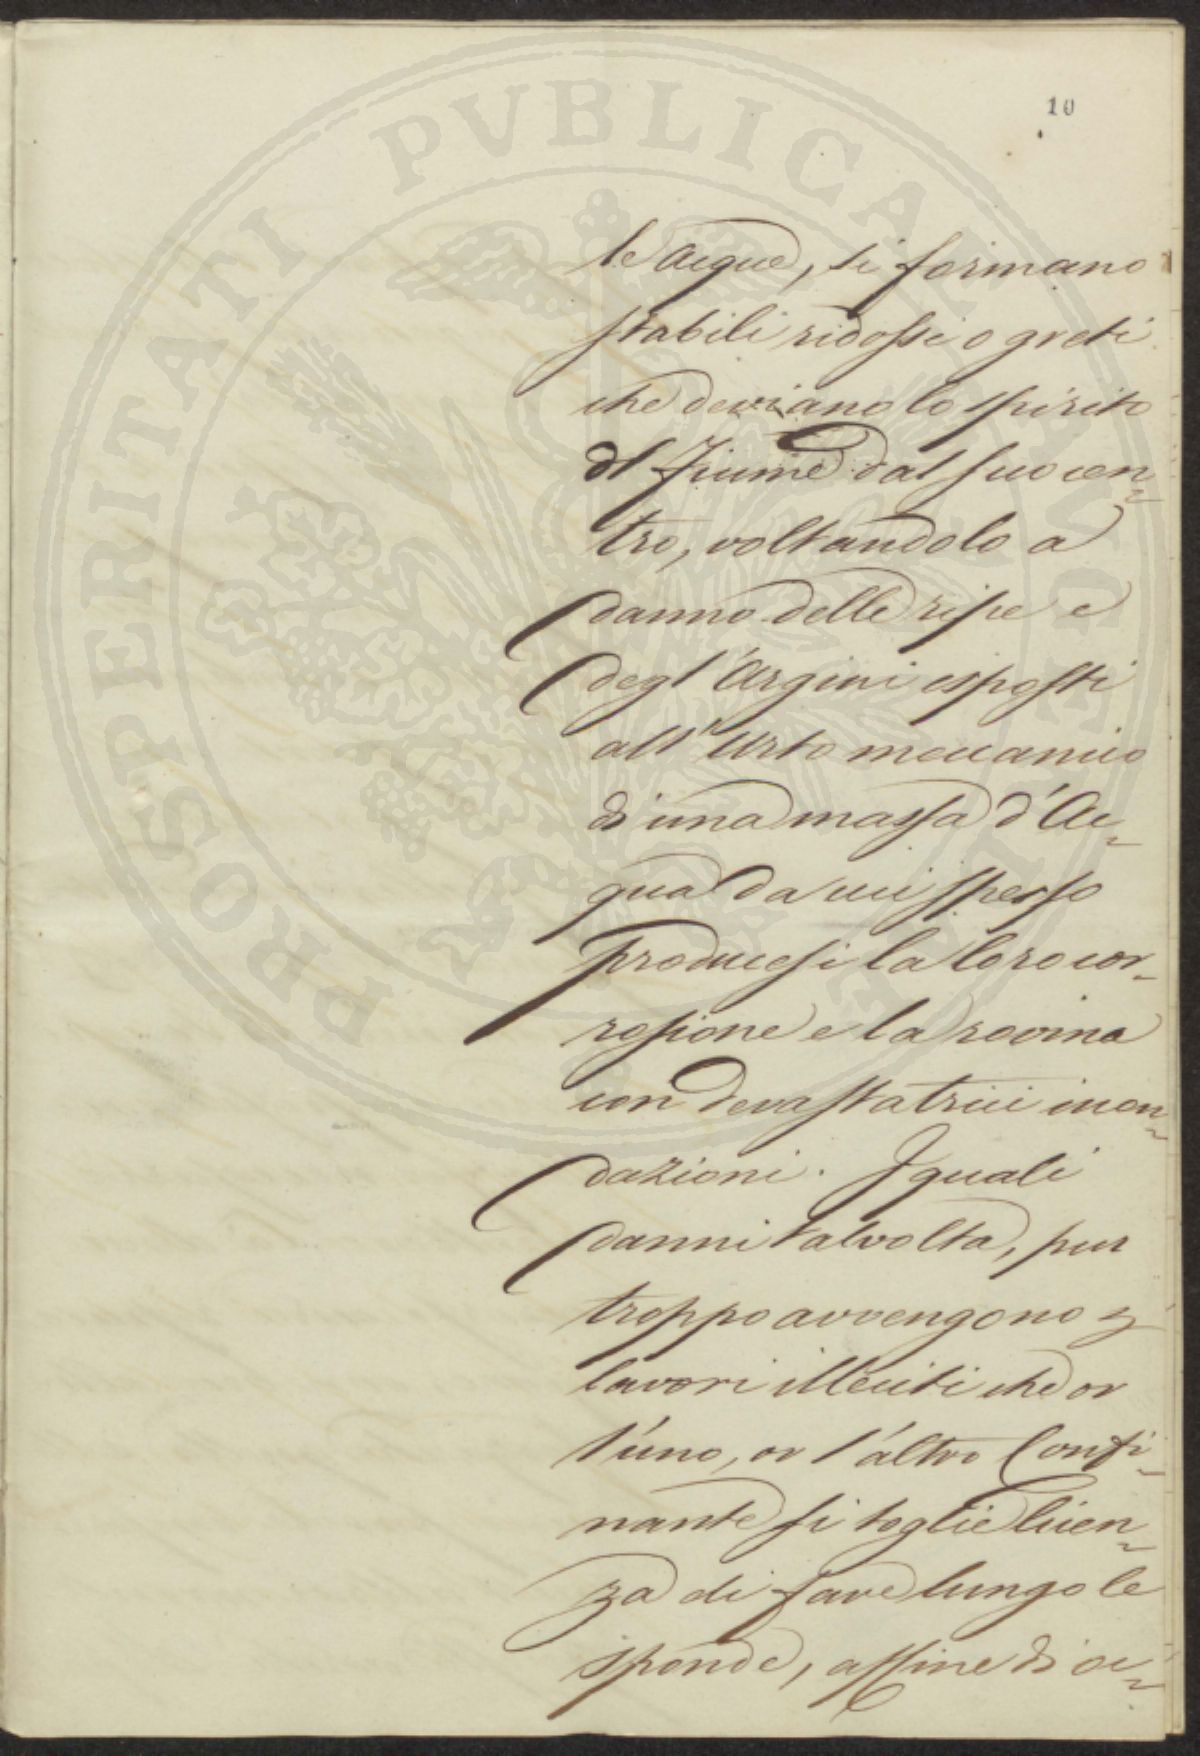 10
le acque, si formano
stabili ridossi o greti
che deviano lo spirito
del Fiume dal suo cen=
tro, voltandolo a
danno delle ripe e
degl'Argini esposti
all'Urto meccanico
di una massa d'Ac=
qua da cui spesso
producesi la loro cor=
rosione e la rovina
con devastatrici inon=
dazioni. Iguali
danni talvolta, pur
troppo avvengono p
lavori illeciti che or
l'uno, or l'altro Confi=
nante si toglie licen=
za di fare lungo le
sponde, affine di ac=
PROSPERITATI PVBLICAE AVGENDAE